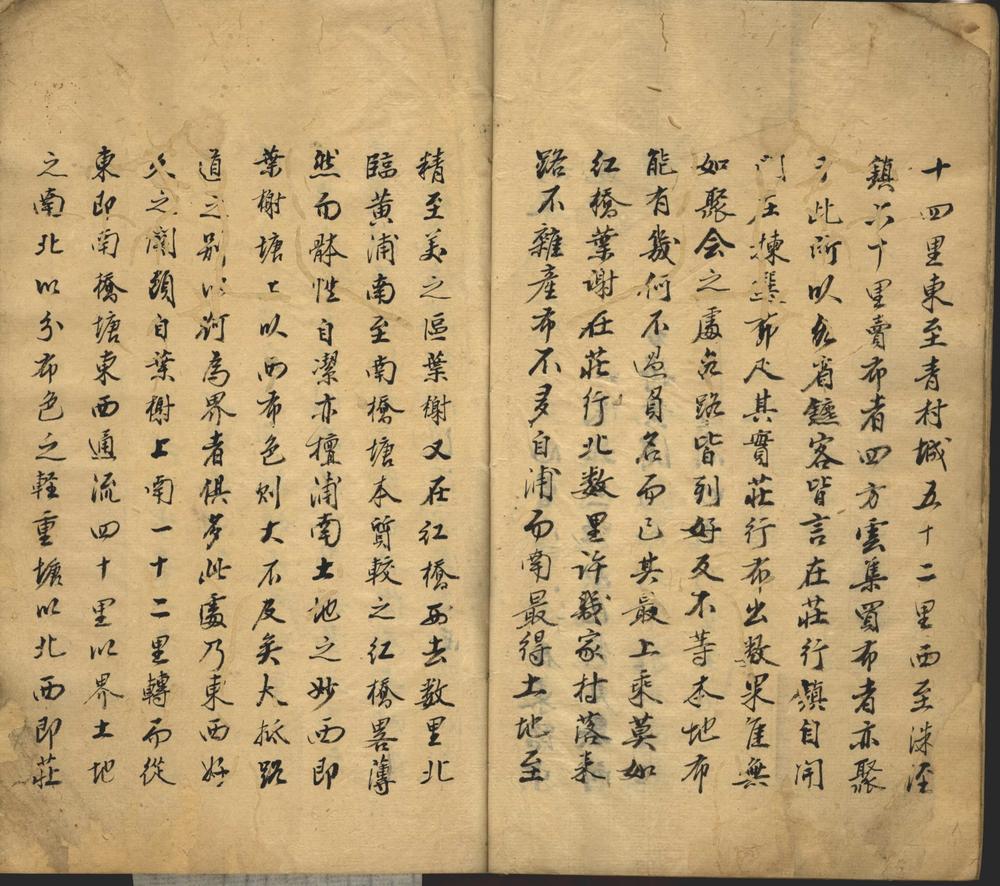 十四里東至青村城五十二里西至洙涇
鎮六十里賣布者四方雲集買布者亦聚
此所以各省鑣客皆言在莊行鎮自開
門在揀其實莊行布出数果隹無
如聚会之處各路皆到好反不等本地布
能有幾何不過負名而已其最上乘莫如
紅橋葉谢在莊行北数里许幾家村落来
路不雜產布不多自浦而南最得土地至
精至美之區葉榭又在紅橋西去数里北
臨黄浦南至南橋塘本質較之紅橋畧薄
然而体性自潔亦擅浦南土地之妙西即
葉榭塘上以西布色则大不及矣大抵路
道之别以河為界者俱多此處乃東西好
之関頭自葉榭上南一十二里轉而從
東即南橋塘東西通流四十里以界土地
之南北以分布色之軽重塘以北西即莊